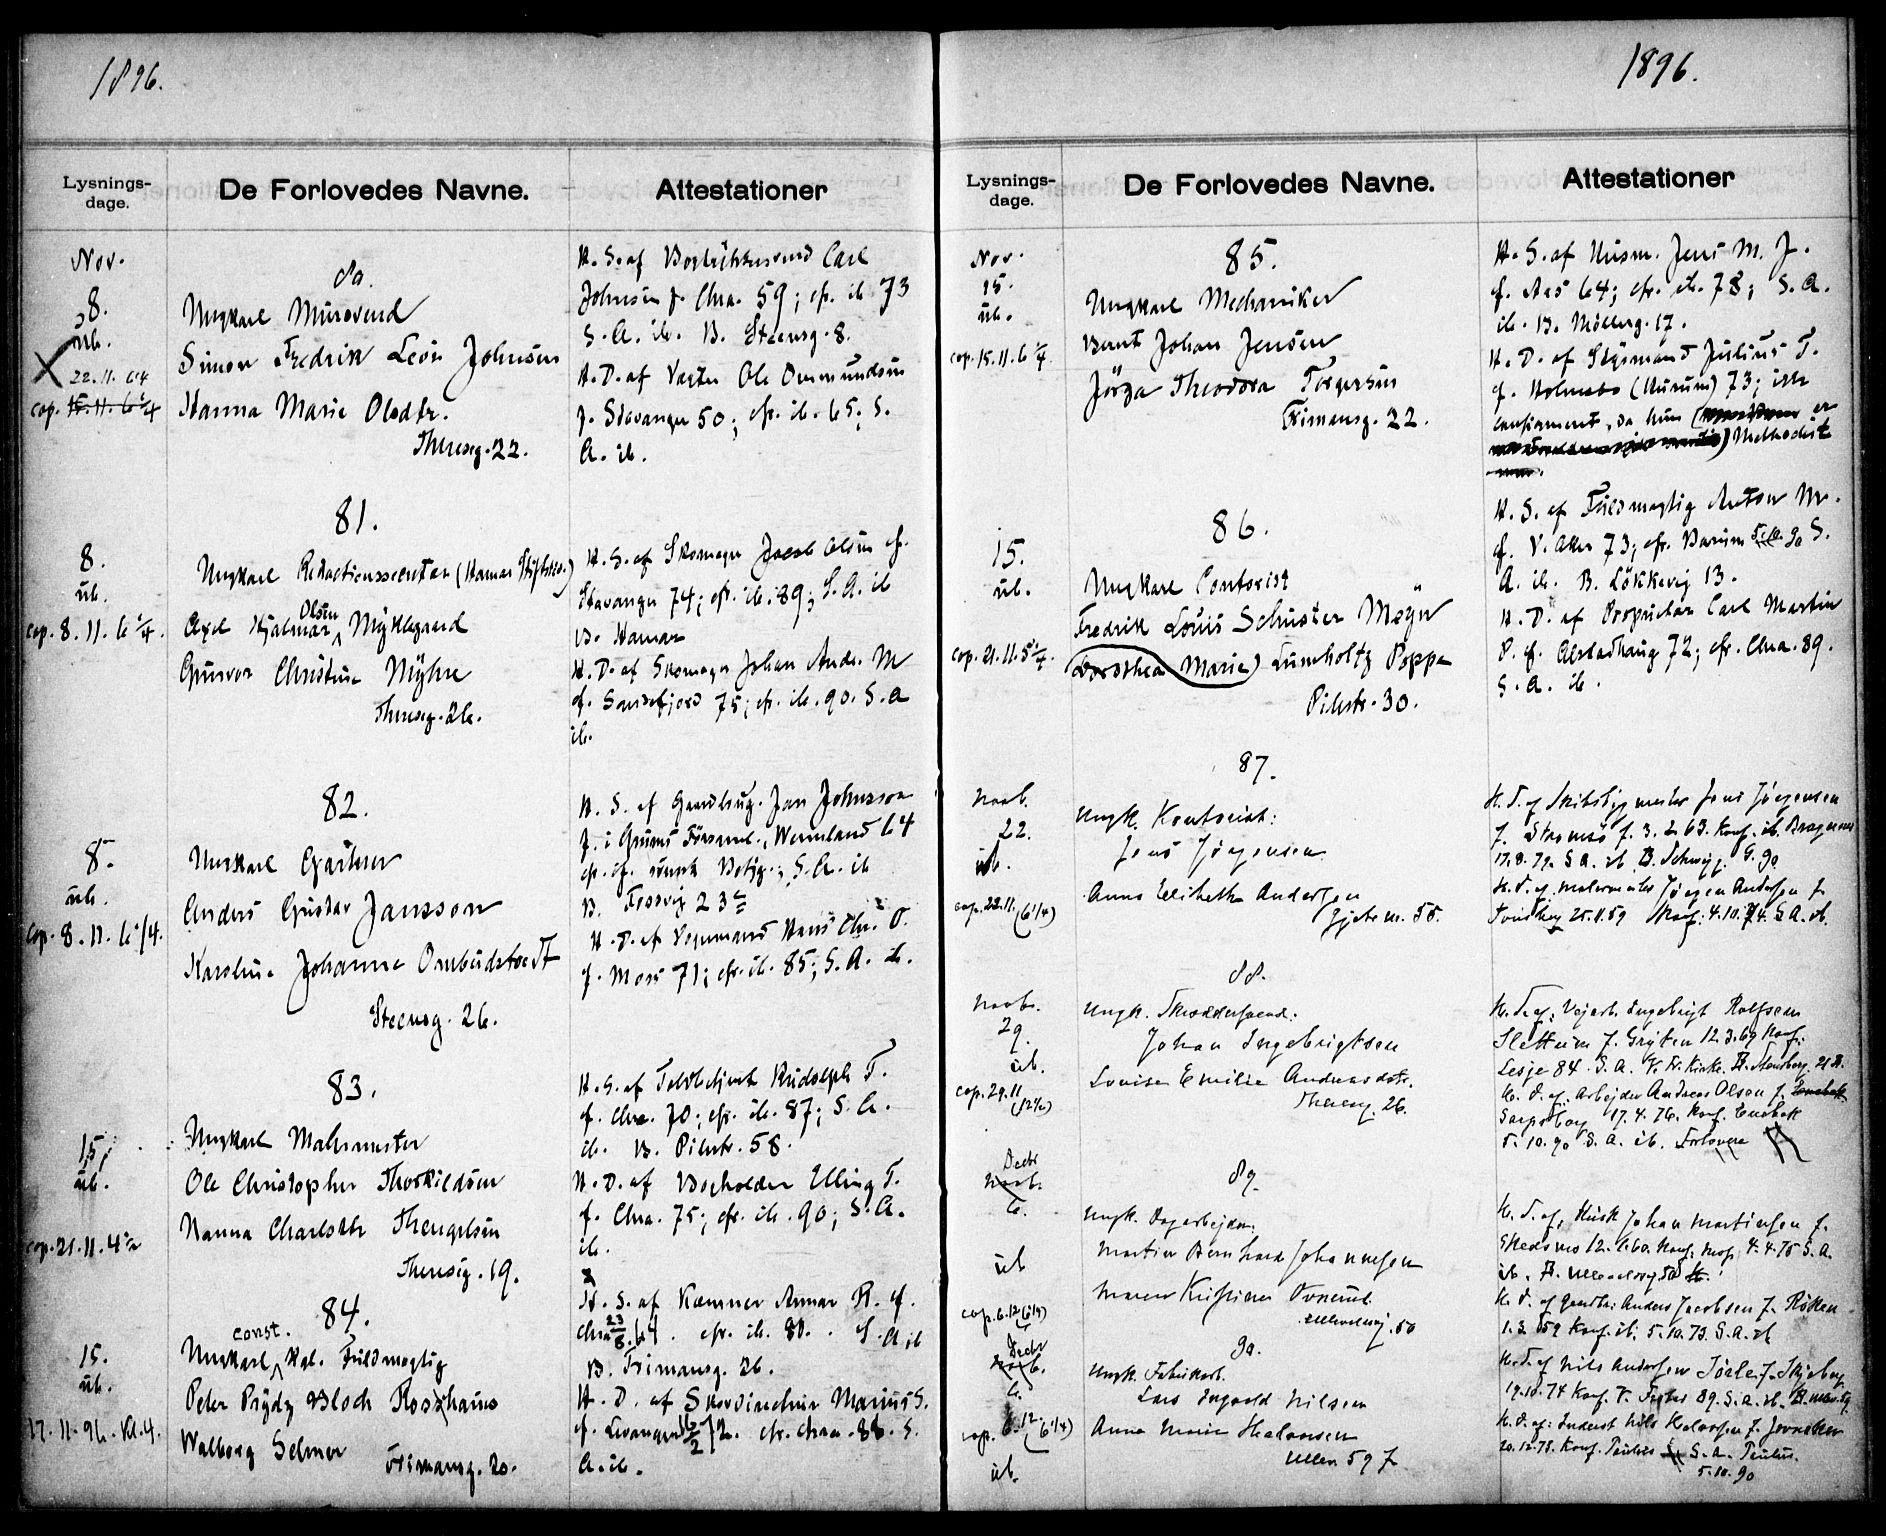 1896.
Lysnings-
dage.
De Forlovedes Navne.
Attestationer
Nov.
8.
üb.
22.11. 6 1/4
cop. 15.11. 6 1/4
80.
Ungkarl Mürsvend
Simon Fredrik Leon Johnsen
Hanna Marie Olsdtr.
Theresg. 22.
Carl
Johnsen f. Chra. 59; cfr. ib 73
S. A. ib. B. Steensg. 8.
H. D. af Ole Ommundsen
f. Stavanger 50; cfr. ib. 65; S.
A. ib.
81.
8.
üb.
cop. 8. 11. 6 1/4.
Ungkarl Redactionssecretær (Hamar Stiftstid.)
Axel Hjalmar Olsen Myklegaard
Gunvor Christine Myhre
Theresg. 26.
H. S. af Skomager Jacob Olsen f.
Stavanger 74; cfr. ib. 89; S. A. ib
B. Hamar
H. D. af Skomager Johan Andr. M
f. Sandefjord 75; cfr. ib. 90. S. A
ib.
82.
8.
üb.
cop. 8. 11. 6 1/4.
Ungkarl Gartner
Anders Gustav Jansson
Karoline Johanne Ombudstvedt
Steensg. 26.
H. S. af Gaardbrug. Jan Johnsson
f. i Grums Församl., Wermland 64
cfr. svensk S. A. ib
B. Fossvej 23 c
H. D. af Vognmand Hans Chr. O.
f. Moss 71; cfr. ib. 85; S. A. ib.
83.
15.
üb.
cop. 21. 11. 4 1/2
Ungkarl Malermester
Ole Christopher Thorkildsen
Nanna Charlotte Thengelsen
Theresg. 19.
H. S. af Toldbetjent Rudolph T.
f. Chra. 70; cfr. ib. 87; S. A.
ib. B. Pilestr. 58.
H. D. af Elling T.
f. Chra. 75; cfr. ib. 90; S. A.
ib.
84.
15.
üb.
17. 11. 96. Kl. 4.
const.
Ungkarl Kgl. Fuldmægtig
Peter Prydz Bloch Rosshaüs
Walborg Selmer
Frimansg. 20.
H. S. af Kæmner R. f.
Chra 23/8. 64. cfr. ib. 80. S. A ib
B. Frimansg. 26.
H. D. af Skovdirecteur Marius S.
f. Levanger 72. cfr. Chra. 88. S.
A. ib.
1896.
Lysnings-
dage.
De Forlovedes Navne.
Attestationer
Nov.
15.
üb.
cop. 15. 11. 6 1/4.
85.
Ungkarl Mechaniker
Bernt Johan Jensen
Jörga Theodora Torgersen
Frimansg. 22.
H. S. af Husm. Jens M. J.
f. Aas 64; cfr. ib. 78; S. A.
ib. B. Möllerg. 17.
H. D. af Styrmand Julius T.
f. Holmsbo (Hurum) 73; ikke
confirmeret, da hun er
Methodist
86.
15.
üb.
cop. 21. 11. 5 1/4.
Ungkarl Contorist
Fredrik Louis Schuster Meyer
(Dorothea Marie) Lumholtz Poppe
Pilestr. 30.
H. S. af Fuldmægtig Anton M.
f. V. Aker 73; cfr. Bærum 90 S.
A. ib. B. Lökkevej 13.
H. D. af Proprietær Carl Martin
P. f. Alstadhaug 72; cfr. Chra. 89.
S. A. ib.
87.
Novb.
22.
üb.
cop. 22.11. (6 1/4)
Ungk. Kontorist:
Jens Jørgensen
Anna Elisabeth Andersen
55.
H. S. af Skibsbygmester Jens Jørgensen
f. Strømsø f. 3. 2. 63. Konf. ib. Bragernes
S. A. ib B. Schweig. G. 90
H. D. af Malermester Jørgen Andersen f.
25.11.59 Konf. 4.10.74. S. A. ib.
88.
Novbr.
29.
üb.
cop. 29.11
(12 1/2)
Ungk. Skræddersvend:
Johan Ingebrigtsen
Lovise Emilie Andreasdtr.
Theresg. 26.
H. S. af: Ingebrigt Rolfsen
Slettum f. Grytten 12.3.69 Konf.:
Lesje 84. S. A.
H. D. af: Arbejder Andreas Olsen f.
Sarpsborg 17. 4. 76. Konf. Enebak
5. 10. 90 S. A. ib. Forlovere
89.
Decbr
Novb.
6.
üb
cop. 6.12 (6 1/4)
Ungk. Dagarbejder.
Martin Bernhard Johannesen
Maren Kristine
Ullevoldsvej. 50
H. S. af, Husk Johan Martinsen f.
Skedsmo 12. 1. 60. Konf. Moss, 4. 4. 75 S. A.
ib. B. Ullevoldsvej 50
H. D. af Gaardbr: Anders Jacobsen f. Røken
1. 3. 59 Konf. ib. 5. 10. 73. S. A. ib
90.
Decbr
6.
cop. 6.12 (6 1/4)
üb.
Ungk. Fabrikarb.
Lars Ingvald Nilsen
Anna Marie Halvorsen
Ullev. 59 f
H. S. af Nils Andersen f. Skjeberg
19.10.74 Konf. 89. S. A. ib.
H. D. af: Inderst Nils Halvorsen f. Jevnaker
20. 12. 75. Konf. Paulus S. A. Paulus.
5. 10. 90